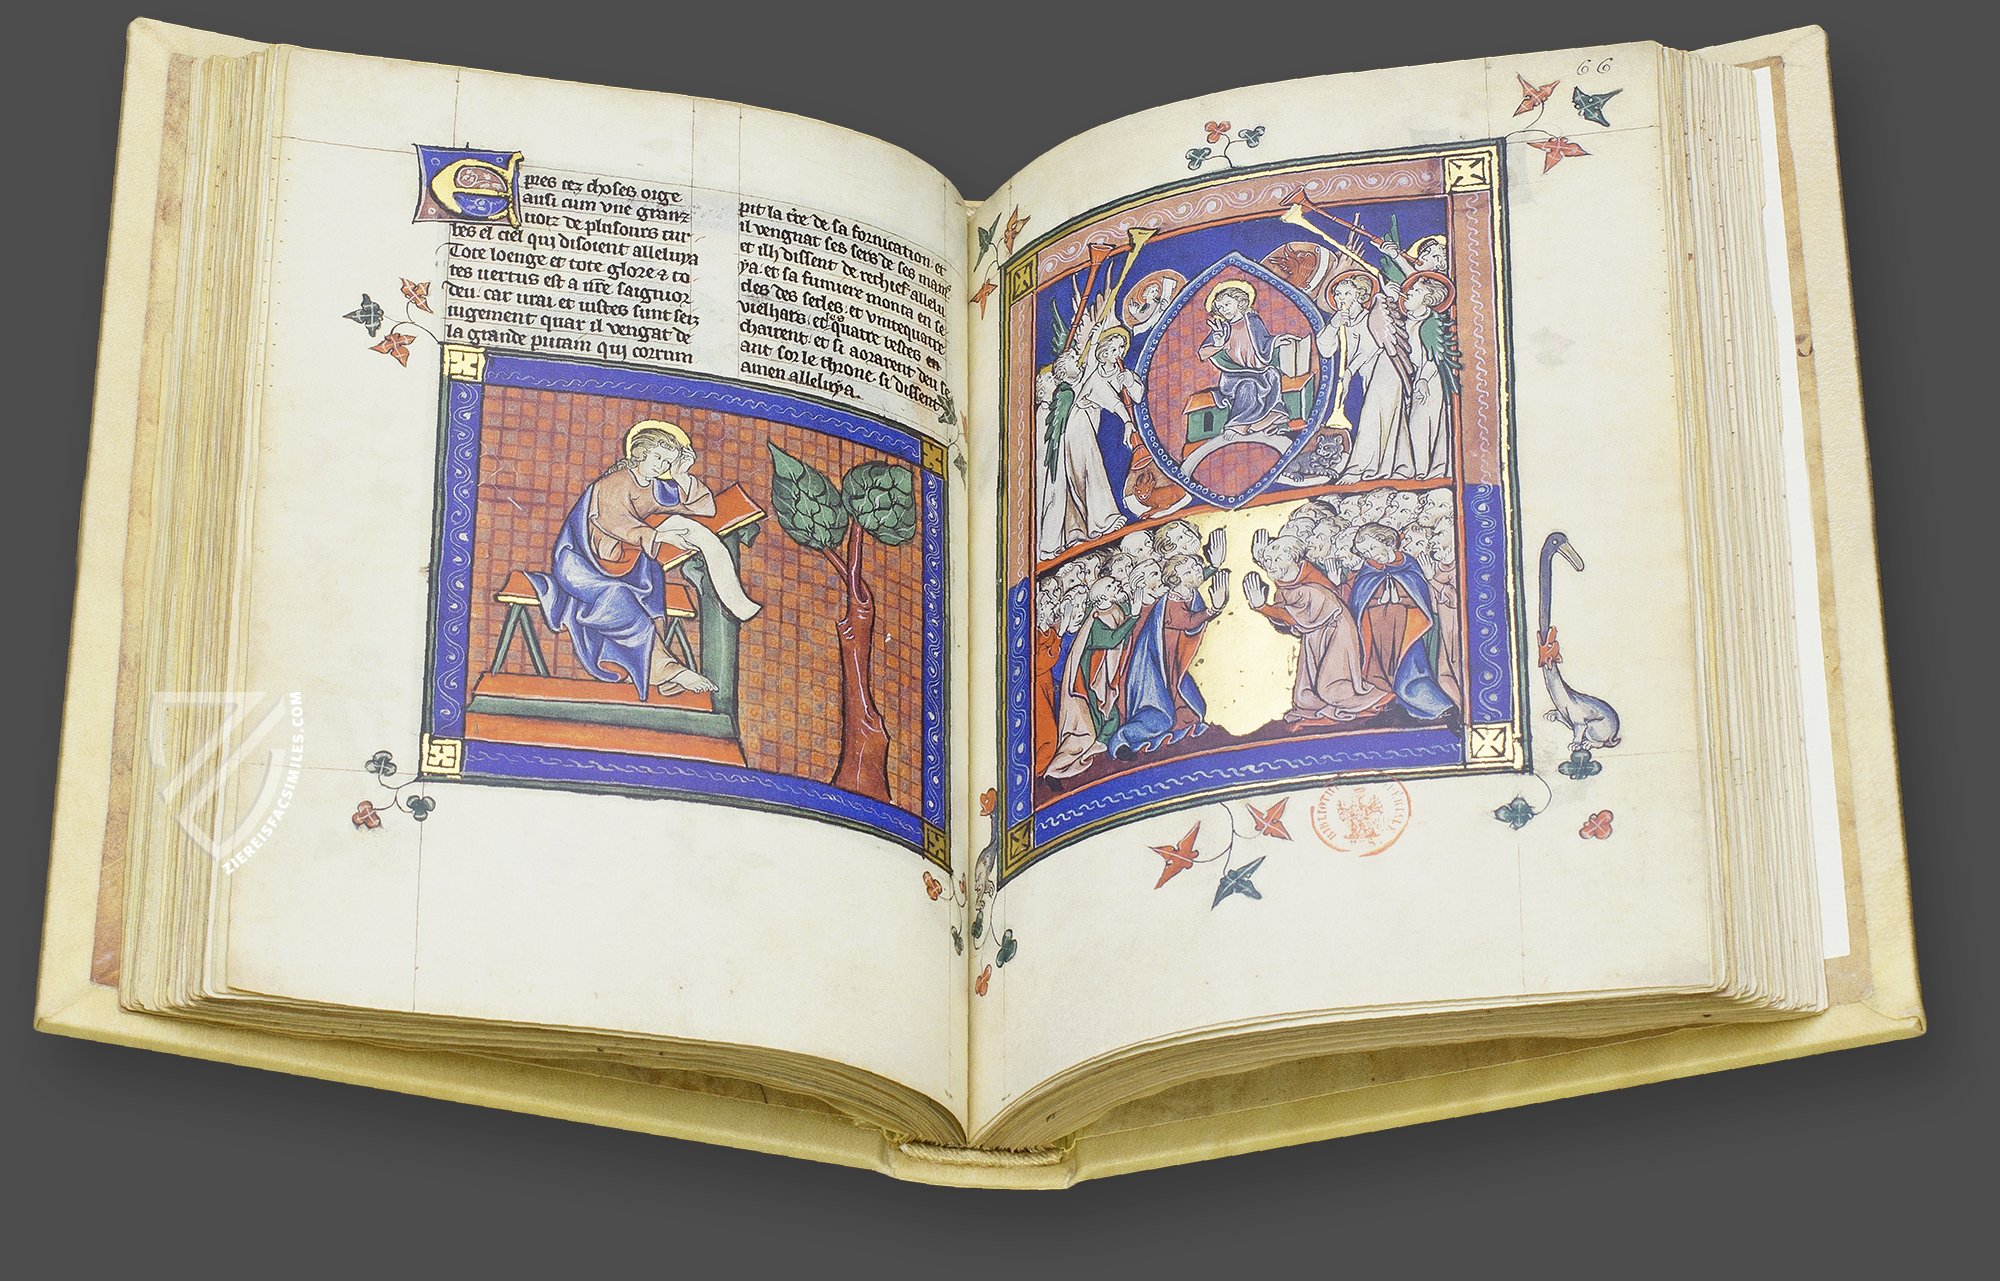 pres cez choses oi ge
ausi cum une granz
uoiz de plusours tur
bes el ciel qui disoient alleluya
Tote loenge et tote glore & to
tes uertus est a nr̄e saignior
deu. car urai et iustes sunt sei
iugement quar il vengat de
la grande putain qui corrum
pit la tr̄e de sa fornication. et
il vengnat ses sers de ses mains.
et ilh dissent de rechief allelu
ya. et sa fumiere monta en se
cles des secles. et vintequatre
vielhars. et les quatre bestes
chairent. et si aorarent deu se
ant sor le throne. si dissent
amen alleluya.
66
BIBLIOTH
ÉRIALE
ZIEREISFACSIMILES.COM